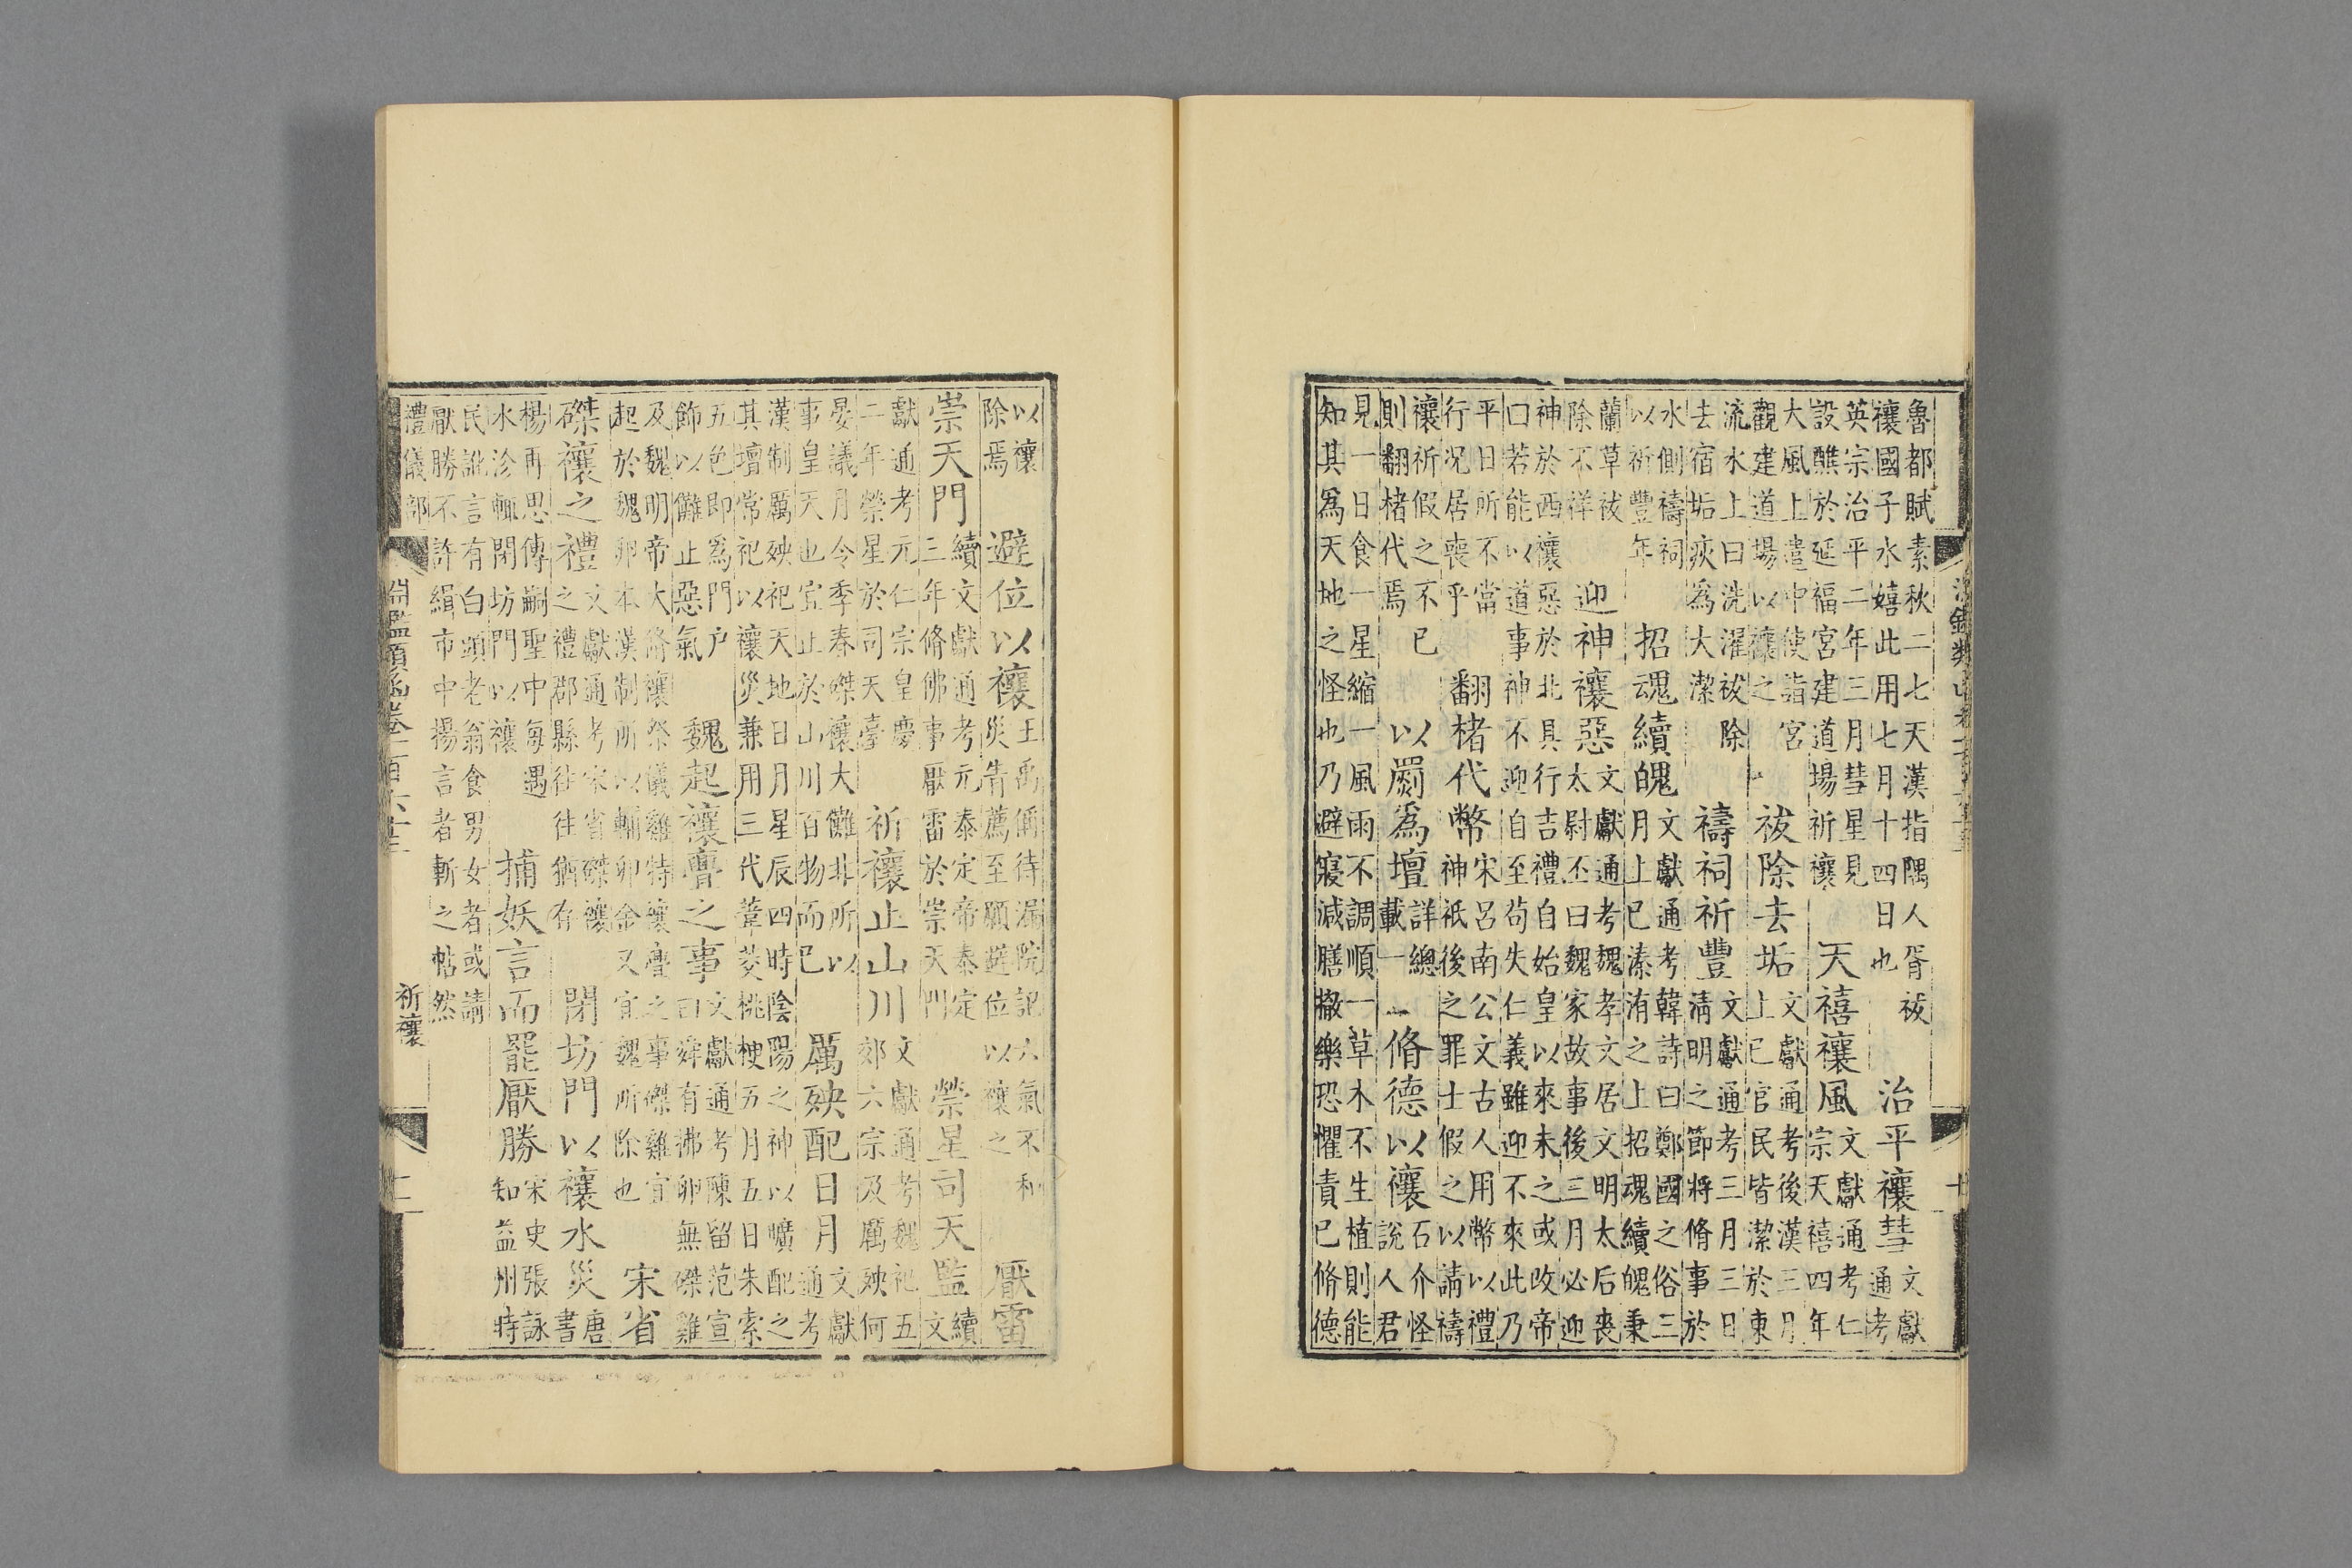 魯都賦素秋二七天漢指隅人胥祓禳國子水嬉此用七月十四日也 治平禳彗 文獻通考
英宗治平二年三月彗星見設醮於延福宮建道場祈禳 天禧禳風 文獻通考仁宗天禧四年
大風上遣中使詣宮觀建道場以禳之 祓除去垢 文獻通考後漢三月上巳官民皆潔於東
流水上曰洗濯祓除去宿垢疢為大潔 禱祠祈豐 文獻通考三月三日清明之節將脩事於
水側禱祠以祈豐年 招魂續魄 文獻通考韓詩曰鄭國之俗三月上巳溱洧之上招魂續魄秉
蘭草祓除不祥 迎神禳惡 文獻通考魏孝文居文明太后喪太尉丕曰魏家故事後三月必迎
神於西禳惡於北具行吉禮自始皇以來未之或改帝曰若能以道事神不迎自至苟失仁義雖迎不來此乃
平日所不當行況居喪乎 翻楮代幣 宋呂南公文古人用幣以禮神祇後之罪士假之以請禱
禳祈假之不已則翻楮代焉 以罽為壇 詳總載一 脩德以禳 石介怪說人君
見一日食一星縮一風雨不調順一草木不生植則能知其為天地之怪也乃避寢減膳撤樂恐懼責已脩德
以禳除焉 避位以禳 王禹偁待漏院記六氣不和災眚薦至願避位以禳之 厭雷
崇天門 續文獻通考元泰定帝泰定三年脩佛事厭雷於崇天門 禜星司天監 續文
獻通考元仁宗皇慶二年禜星於司天臺 祈禳止山川 文獻通考魏祀五郊六宗及厲殃何
晏議月令季春磔禳大儺非所以事皇天也宜止於山川百物而已 厲殃配日月 文獻通考
漢制厲殃祀天地日月星辰四時陰陽之神以曠配之其壇常祀以禳災兼用三代葦茭桃梗五月五日朱索
五色即為門户飾以儺止惡氣 魏起禳舋之事 文獻通考陳留范宣曰舜有拂卵無磔雞
及魏明帝大脩禳祭儀雞特禳舋之事磔雞宜起於魏卵本漢制所以輔卯金又宜魏所除也 宋省
磔禳之禮 文獻通考宋省磔禳之禮郡縣往往猶有 閉坊門以禳水災 唐書
楊再思傳嗣聖中每遇水沴輒閉坊門以禳 捕妖言而罷厭勝 宋史張詠知益州時
民訛言有白頭老翁食男女者或請厭勝不許緝市中揚言者斬之帖然
禮儀部
淵鑑類函卷一百六十三
祈禳